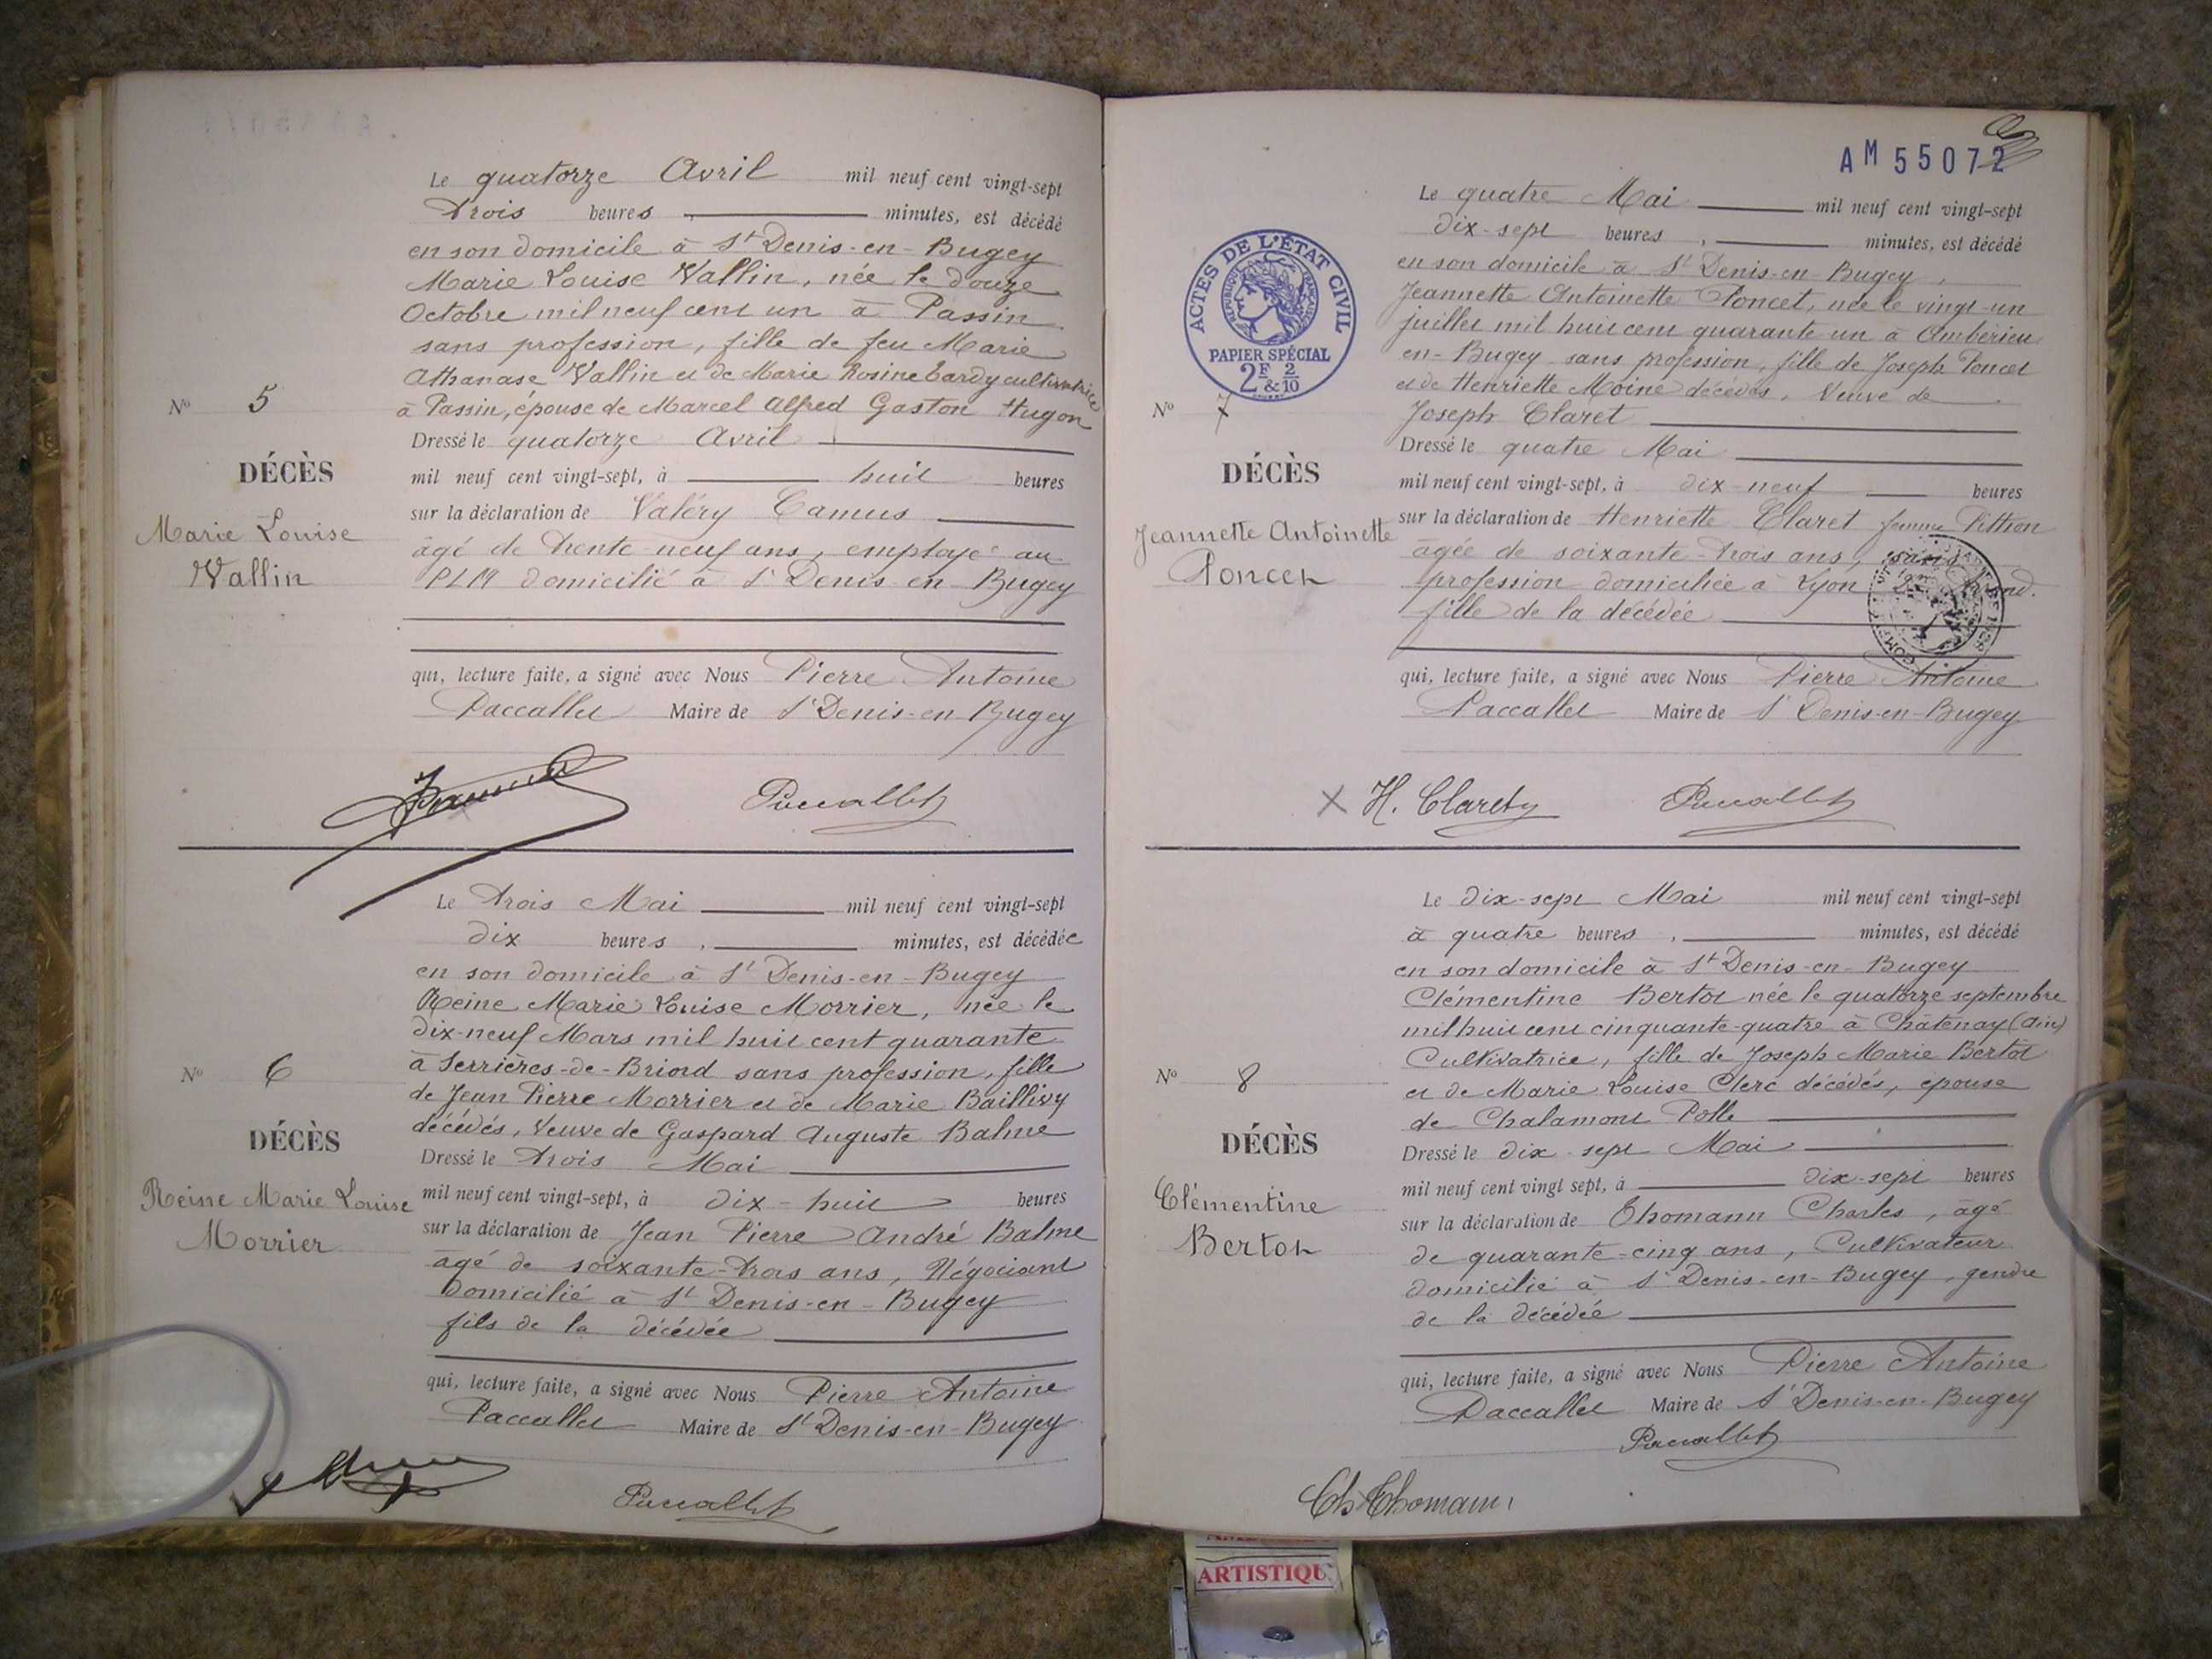 Le quatorze Avril mil neuf cent vingt-sept
Trois heures, minutes, est décédé
en son domicile à St Denis-en-Bugey
Marie Louise Vallin, née le douze
Octobre mil neuf cent un à Passin
sans profession, fille de feu Marie
Athanase Vallin et de Marie Rosine Cardy cultivatrice
à Passin, épouse de Marcel Alfred Gaston Hugon
Dressé le quatorze Avril
mil neuf cent vingt-sept, à huit heures
sur la déclaration de Valéry Camus
âgé de trente neuf ans, employé au
PLM domicilié à St Denis en Bugey
qui, lecture faite, a signé avec Nous Pierre Antoine
Paccallet Maire de St Denis-en-Bugey
No 5
DÉCÈS
Marie Louise
Vallin
Paccallet
Le trois Mai mil neuf cent vingt-sept
dix heures, minutes, est décédée
en son domicile à St Denis-en-Bugey
Reine Marie Louise Morrier, née le
dix-neuf Mars mil huit cent quarante
à Serrières-de-Briord sans profession, fille
de Jean Pierre Morrier et de Marie Baillivy
décédés, Veuve de Gaspard Auguste Balme
Dressé le trois Mai
mil neuf cent vingt-sept, à dix-huit heures
sur la déclaration de Jean Pierre André Balme
âgé de soixante-trois ans, Négociant
domicilié à St Denis-en-Bugey
fils de la décédée
qui, lecture faite, a signé avec Nous Pierre Antoine
Paccallet Maire de St Denis-en-Bugey
No 6
DÉCÈS
Reine Marie Louise
Morrier
Paccallet
AM 55072
ACTES DE L'ÉTAT CIVIL
RÉPUBLIQUE FRANÇAISE
PAPIER SPÉCIAL
2F 2
& 10
Le quatre Mai mil neuf cent vingt-sept
dix-sept heures, minutes, est décédé
en son domicile à St Denis-en-Bugey,
Jeannette Antoinette Poncet, née le vingt-un
juillet mil huit cent quarante-un à Ambérieu
en-Bugey sans profession, fille de Joseph Poncet
et de Henriette Moine décédés, Veuve de
Joseph Claret
Dressé le quatre Mai
mil neuf cent vingt-sept, à dix-neuf heures
sur la déclaration de Henriette Claret femme Pittion
âgée de soixante-trois ans, sans
profession domiciliée à Lyon
fille de la décédée
qui, lecture faite, a signé avec Nous Pierre Antoine
Paccallet Maire de St Denis-en-Bugey
No 7
DÉCÈS
Jeannette Antoinette
Poncet
X H. Claret
Paccallet
Le dix-sept Mai mil neuf cent vingt-sept
à quatre heures, minutes, est décédé
en son domicile à St Denis-en-Bugey
Clémentine Bertot née le quatorze septembre
mil huit cent cinquante-quatre à Châtenay (Ain)
Cultivatrice, fille de Joseph Marie Bertot
et de Marie Louise Clerc décédés, épouse
de Chalamont Polle
Dressé le dix-sept Mai
mil neuf cent vingt sept, à dix-sept heures
sur la déclaration de Thomann Charles, âgé
de quarante-cinq ans, Cultivateur
domicilié à St Denis-en-Bugey, gendre
de la décédée
qui, lecture faite, a signé avec Nous Pierre Antoine
Paccallet Maire de St Denis-en-Bugey
No 8
DÉCÈS
Clémentine
Bertot
Paccallet
Ch Thomann
ARTISTIQU